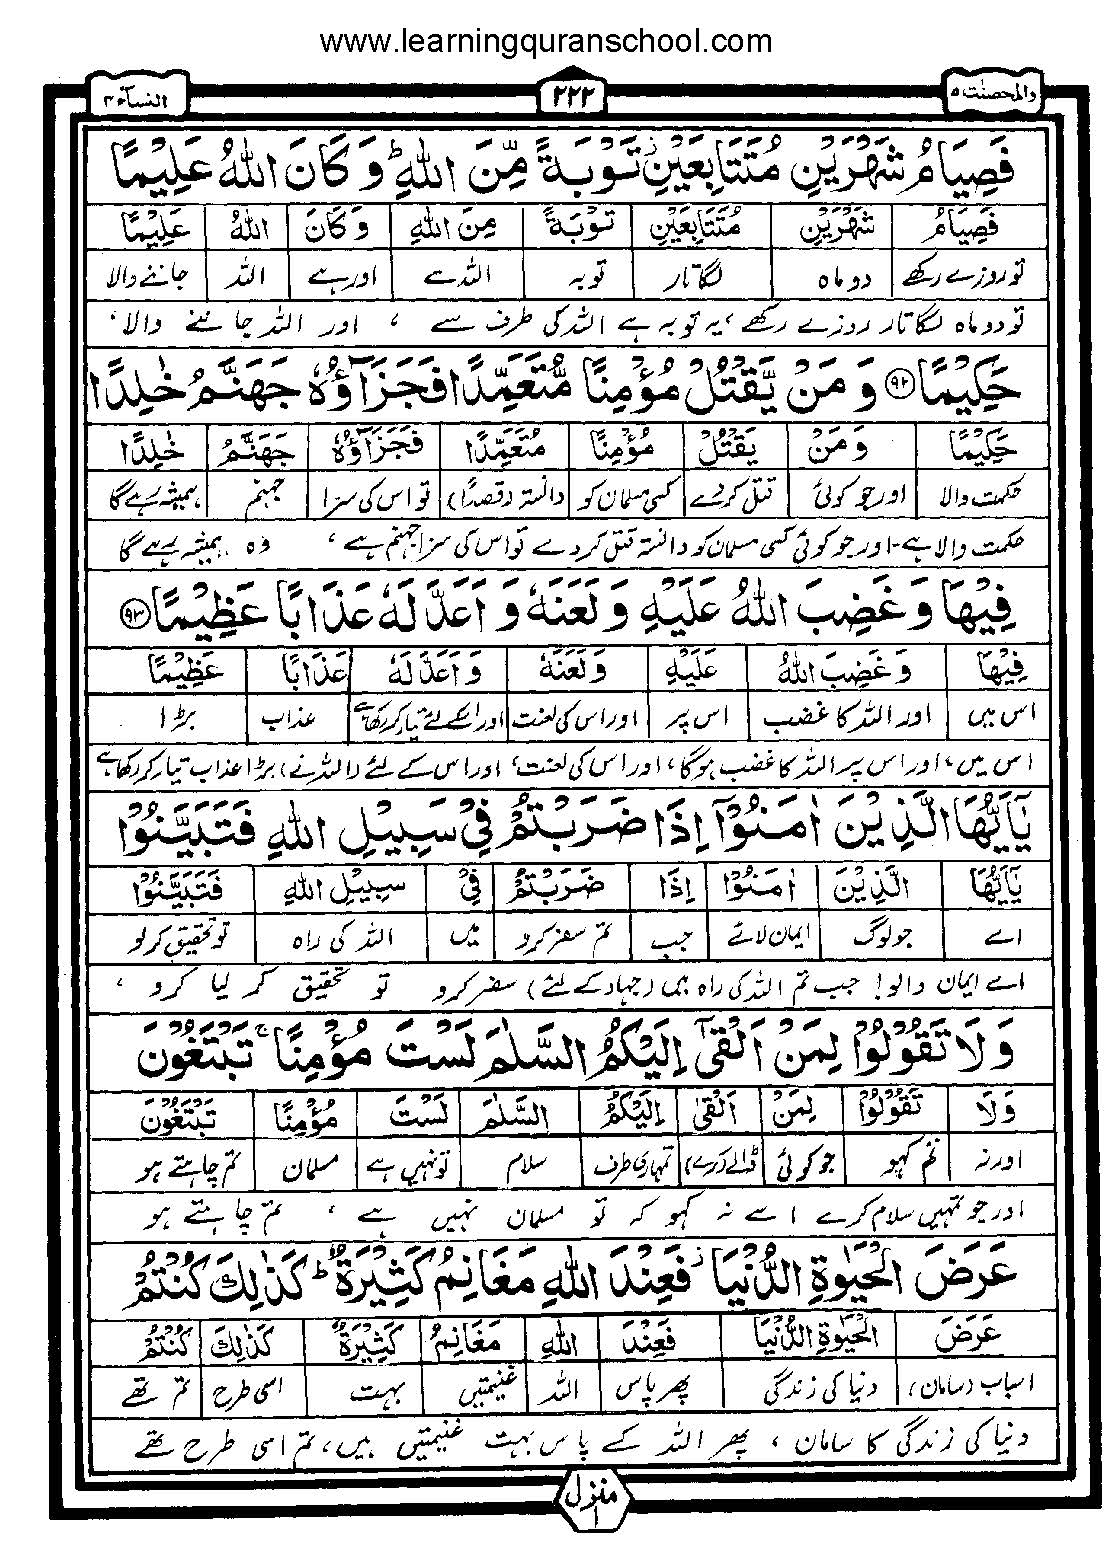 www.learningquranschool.com
النسآء ٤
٢٢٢
والمحصنٰت ٥
فَصِيَامُ شَهْرَيْنِ مُتَتَابِعَيْنِ ۫ تَوْبَةً مِّنَ اللّٰهِ ؕ وَكَانَ اللّٰهُ عَلِيْمًا
فَصِيَامُ شَهْرَيْنِ مُتَتَابِعَيْنِ تَوْبَةً مِنَ اللّٰهِ وَكَانَ اللّٰهُ عَلِيْمًا
تو روزے رکھے دو ماہ لگاتار توبہ اللہ سے اور ہے اللہ جاننے والا
تو دو ماہ لگاتار روزے رکھے، یہ توبہ ہے اللہ کی طرف سے ، اور اللہ جاننے والا،
حَكِيْمًا ﴿٩٢﴾ وَمَنْ يَّقْتُلْ مُؤْمِنًا مُّتَعَمِّدًا فَجَزَآؤُهٗ جَهَنَّمُ خٰلِدًا
حَكِيْمًا وَمَنْ يَقْتُلْ مُؤْمِنًا مُتَعَمِّدًا فَجَزَآؤُهٗ جَهَنَّمُ خٰلِدًا
حکمت والا اور جو کوئی قتل کر دے کسی مسلمان کو دانستہ (قصدًا) تو اس کی سزا جہنم ہمیشہ رہے گا
حکمت والا ہے۔ اور جو کوئی کسی مسلمان کو دانستہ قتل کر دے تو اس کی سزا جہنم ہے ، وہ ہمیشہ رہے گا
فِيْهَا وَغَضِبَ اللّٰهُ عَلَيْهِ وَلَعَنَهٗ وَاَعَدَّ لَهٗ عَذَابًا عَظِيْمًا ﴿٩٣﴾
فِيْهَا وَغَضِبَ اللّٰهُ عَلَيْهِ وَلَعَنَهٗ وَاَعَدَّ لَهٗ عَذَابًا عَظِيْمًا
اس میں اور اللہ کا غضب اس پر اور اس کی لعنت اور اسکے لئے تیار کر رکھا ہے عذاب بڑا
اس میں، اور اس پر اللہ کا غضب ہوگا، اور اس کی لعنت، اور اس کے لئے (اللہ نے) بڑا عذاب تیار کر رکھا ہے
يٰٓاَيُّهَا الَّذِيْنَ اٰمَنُوْٓا اِذَا ضَرَبْتُمْ فِيْ سَبِيْلِ اللّٰهِ فَتَبَيَّنُوْا
يٰٓاَيُّهَا الَّذِيْنَ اٰمَنُوْٓا اِذَا ضَرَبْتُمْ فِيْ سَبِيْلِ اللّٰهِ فَتَبَيَّنُوْا
اے جو لوگ ایمان لائے جب تم سفر کرو میں اللہ کی راہ تو تحقیق کر لو
اے ایمان والو! جب تم اللہ کی راہ میں (جہاد کے لئے) سفر کرو تو تحقیق کر لیا کرو ،
وَلَا تَقُوْلُوْا لِمَنْ اَلْقٰٓى اِلَيْكُمُ السَّلٰمَ لَسْتَ مُؤْمِنًا ۚ تَبْتَغُوْنَ
وَلَا تَقُوْلُوْا لِمَنْ اَلْقٰٓى اِلَيْكُمُ السَّلٰمَ لَسْتَ مُؤْمِنًا تَبْتَغُوْنَ
اور نہ تم کہو جو کوئی ڈالے (کرے) تمہاری طرف سلام تو نہیں ہے مسلمان تم چاہتے ہو
اور جو تمہیں سلام کرے اسے نہ کہو کہ تو مسلمان نہیں ہے ، تم چاہتے ہو
عَرَضَ الْحَيٰوةِ الدُّنْيَا ۫ فَعِنْدَ اللّٰهِ مَغَانِمُ كَثِيْرَةٌ ؕ كَذٰلِكَ كُنْتُمْ
عَرَضَ الْحَيٰوةِ الدُّنْيَا فَعِنْدَ اللّٰهِ مَغَانِمُ كَثِيْرَةٌ كَذٰلِكَ كُنْتُمْ
اسباب (سامان) دنیا کی زندگی پھر پاس اللہ غنیمتیں بہت اسی طرح تم تھے
دنیا کی زندگی کا سامان ، پھر اللہ کے پاس بہت غنیمتیں ہیں، تم اسی طرح تھے
منزل ١